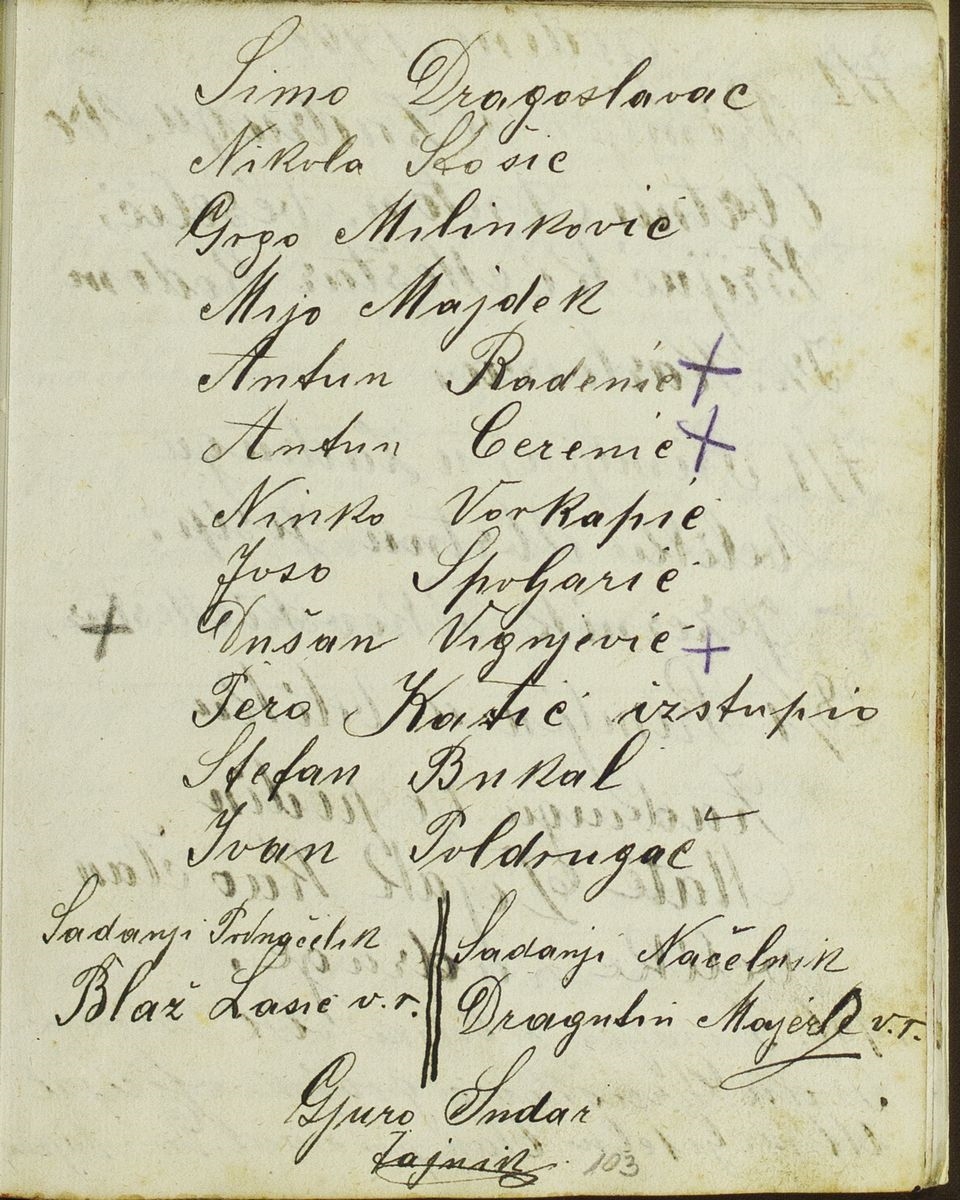 Simo Dragoslavac
Nikola Stosic
Grgo Milinković
Mijo Majdek
Antun Radenic +
Antun Cerenic +
Ninko Vorkapić
Joso Spoljarić
+ Dušan Vignjević +
Pero Katić izstupio
Stefan Bukal
Ivan Poldrugač
Sadanji Podnačelik
Blaž Lasić v.r.
Sadanji Načelnik
Dragutin Majerle v.r.
Gjuro Sudar
Tajnik
103